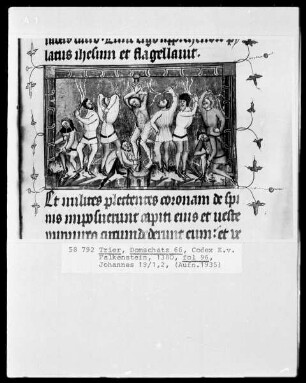 latus ihesum et flagellavit.
Et milites plectentes coronam de spi
nis imposuerunt capiti eius et veste
purpurea circumdederunt eum: et ve
58 792 Trier, Domschatz 66, Codex K.v.
Falkenstein, 1380, fol 96,
Johannes 19/1,2, (Aufn.1935)